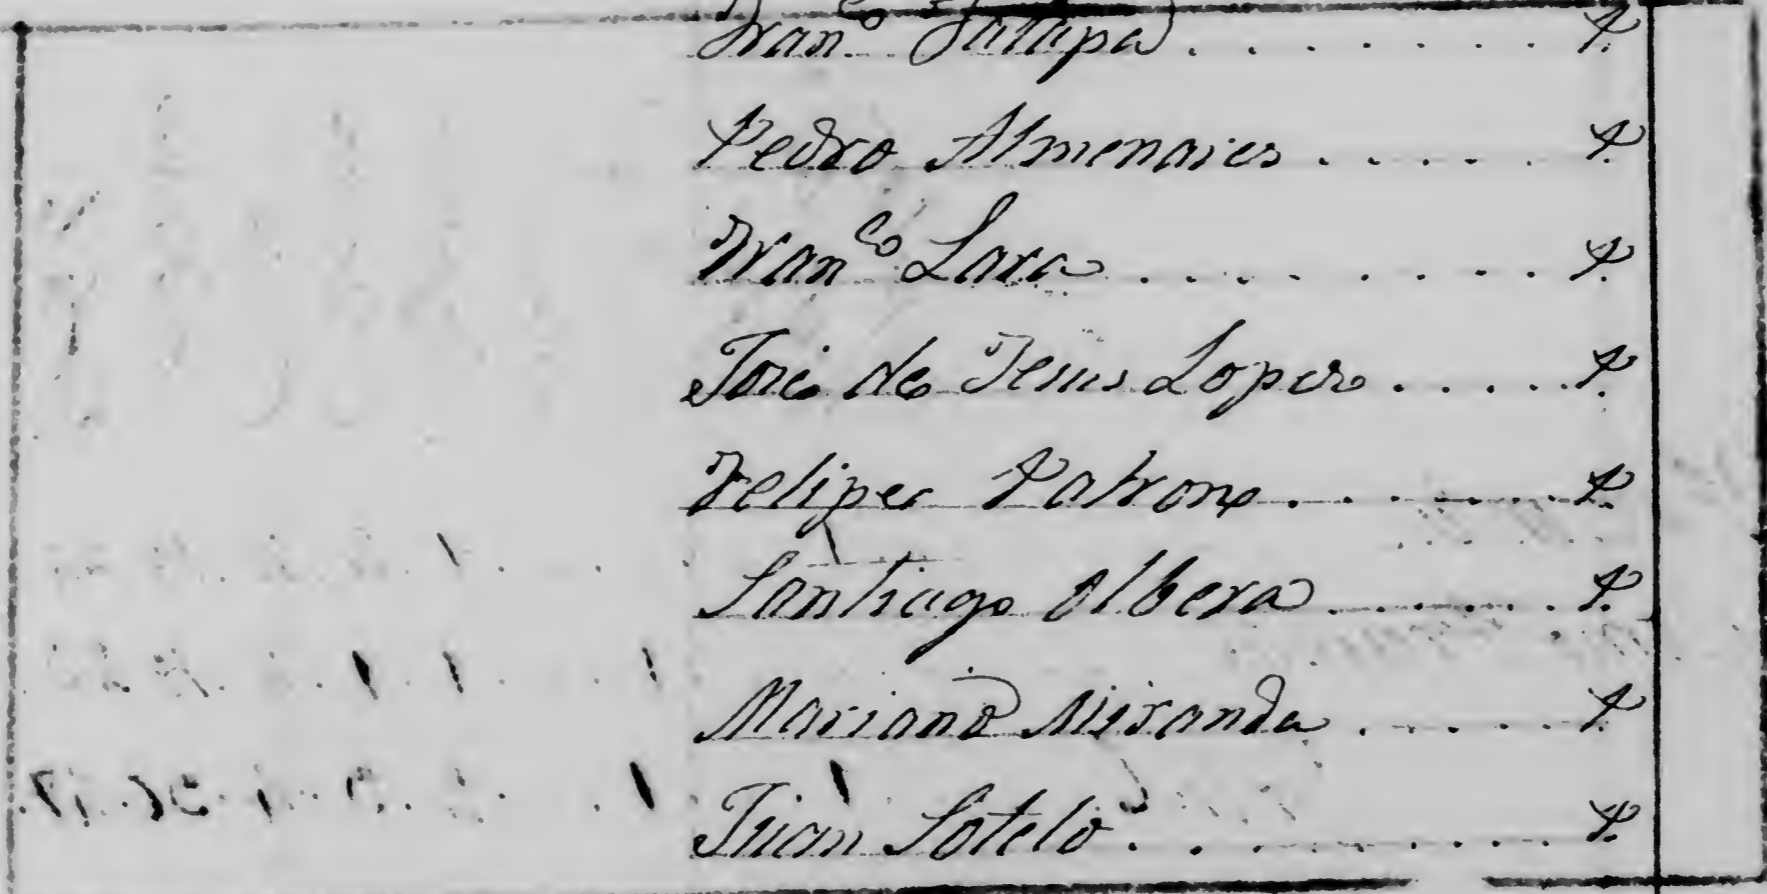 Fran.co Jalapa . . . . . . . . P.
Pedro Almenares . . . . . P.
Fran.co Lara . . . . . . . . P.
José de Jesus Lopez . . . . . P.
Felipe Patrono . . . . . P.
Santiago Olbera . . . . . P.
Mariano Miranda . . . . . P.
Juan Sotelo . . . . . . . P.